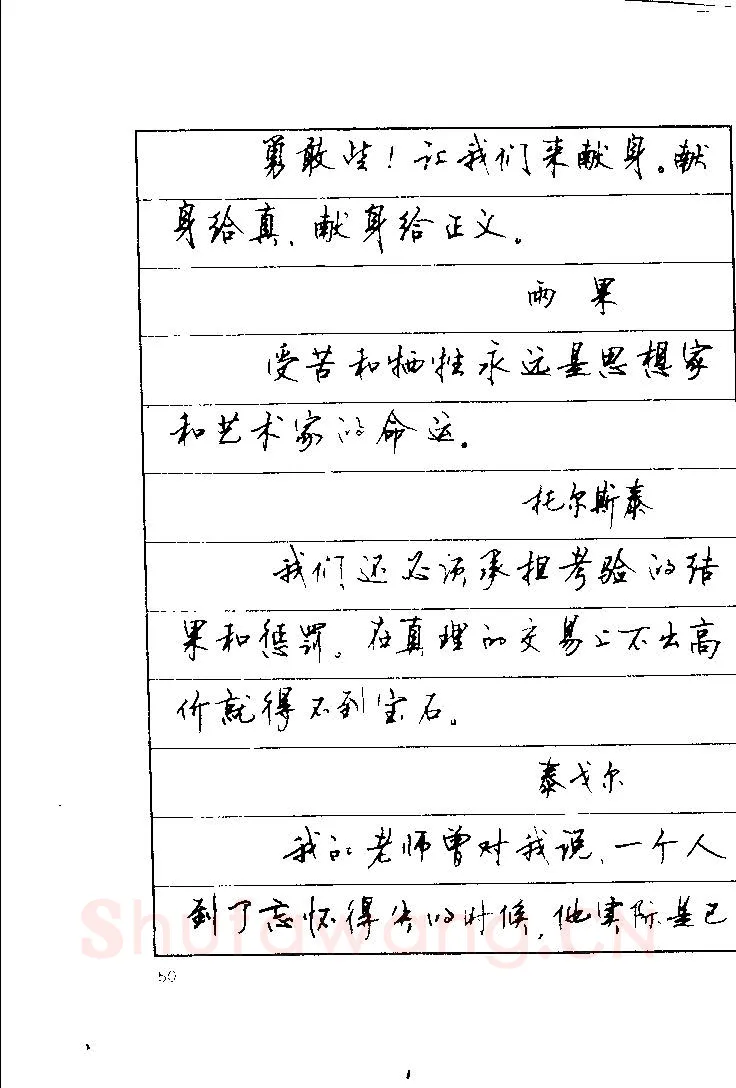 勇敢些！让我们来献身。献
身给真、献身给正义。
雨果
受苦和牺牲永远是思想家
和艺术家的命运。
托尔斯泰
我们还必须承担考验的结
果和惩罚。在真理的交易上不出高
价就得不到宝石。
泰戈尔
我的老师曾对我说，一个人
到了忘怀得失的时候，他实际是已
Shufawang.CN
50